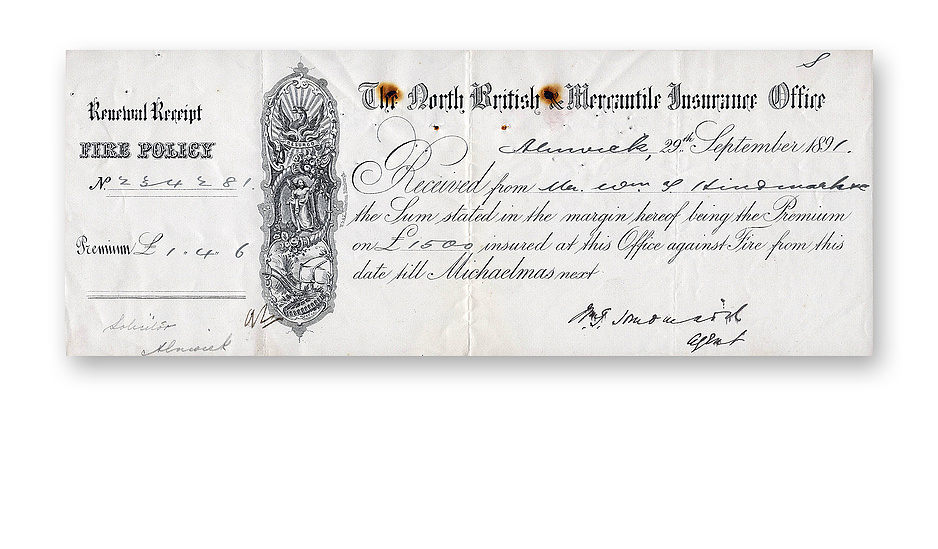 S
Renewal Receipt
FIRE POLICY
No. 2234281.
Premium £1.4.6
Solicitor
Alnwick
RESURGO
The North British & Mercantile Insurance Office
Alnwick, 29th September 1891.
Received from Mr. Wm T Hindmarsh
the Sum stated in the margin hereof being the Premium
on £1500 insured at this Office against Fire from this
date till Michaelmas next
Wm T. Hindmarsh
Agent